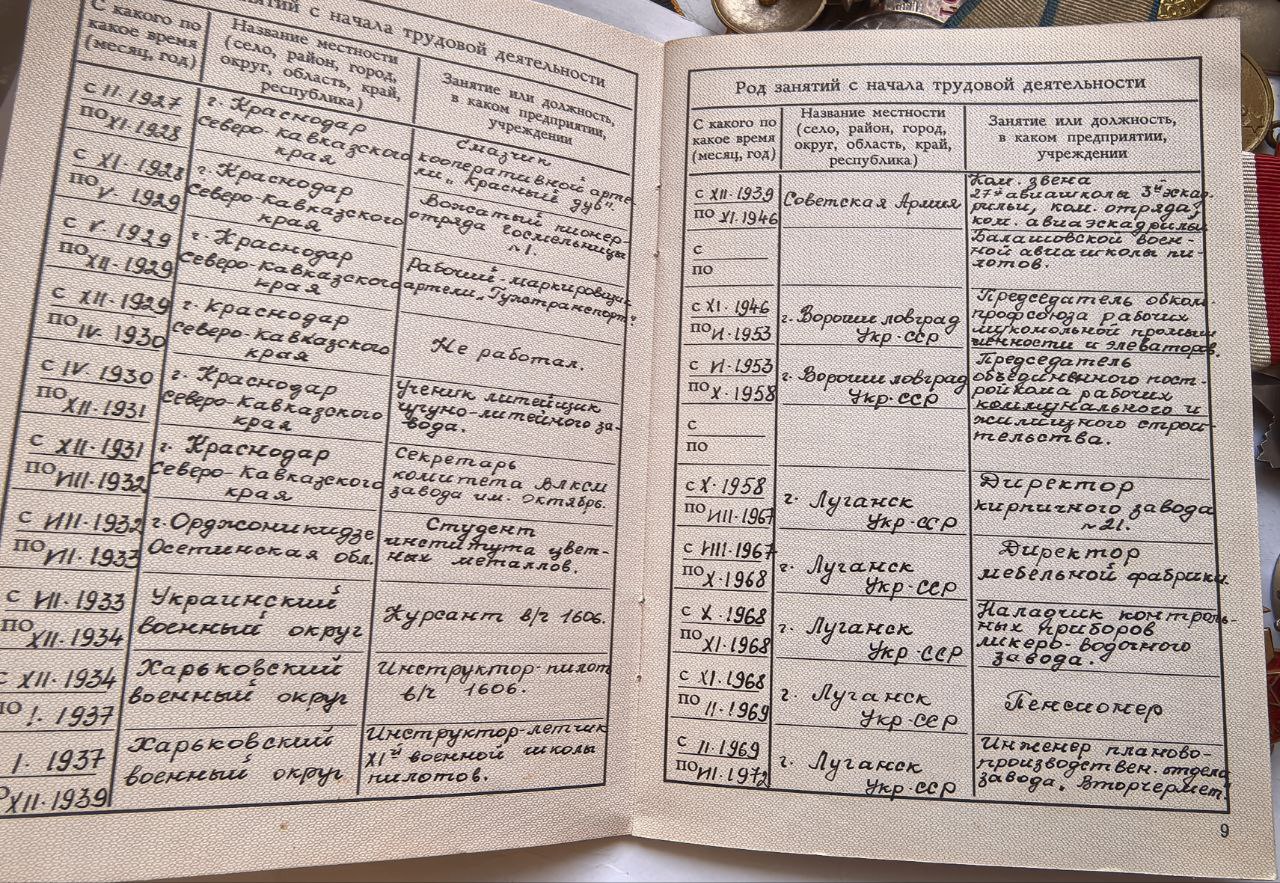 занятий с начала трудовой деятельности
С какого по
какое время
(месяц, год)
Название местности
(село, район, город,
округ, область, край,
республика)
Занятие или должность,
в каком предприятии,
учреждении
с II. 1927
по XI. 1928
г. Краснодар
Северо-Кавказского
края
Смазчик
кооперативной арте-
ли „Красный дуб".
с XI. 1928
по V. 1929
г. Краснодар
Северо-Кавказского
края
Вожатый пионер-
отряда Госмельницы
№1.
с V. 1929
по XII. 1929
г. Краснодар
Северо-Кавказского
края
Рабочий-маркировщик
артели „Гужтранспорт".
с XII. 1929
по IV. 1930
г. Краснодар
Северо-Кавказского
края
Не работал.
с IV. 1930
по XII. 1931
г. Краснодар
Северо-Кавказского
края
Ученик литейщик
чугуно-литейного за-
вода.
с XII. 1931
по VIII. 1932
г. Краснодар
Северо-Кавказского
края
Секретарь
комитета ВЛКСМ
завода им. Октябрь.
с VIII. 1932
по VII. 1933
г. Орджоникидзе
Осетинская обл.
Студент
института цвет-
ных металлов.
с VII. 1933
по XII. 1934
Украинский
военный округ
Курсант в/ч 1606.
с XII. 1934
по I. 1937
Харьковский
военный округ
Инструктор-пилот
в/ч 1606.
I. 1937
XII. 1939
Харьковский
военный округ
Инструктор-летчик
XIй военной школы
пилотов.
Род занятий с начала трудовой деятельности
С какого по
какое время
(месяц, год)
Название местности
(село, район, город,
округ, область, край,
республика)
Занятие или должность,
в каком предприятии,
учреждении
с XII. 1939
по XI. 1946
Советская Армия
Ком. звена
27й авиашколы 3й эскад-
рильи, ком. отряда,
ком. авиаэскадрильи
Балашовской воен-
ной авиашколы пи-
лотов.
с
по
с XI. 1946
по VI. 1953
г. Ворошиловград
Укр. ССР
Председатель обком.
профсоюза рабочих
мукомольной промыш
ленности и элеваторов.
с VI. 1953
по X. 1958
г. Ворошиловград
Укр. ССР
Председатель
объединенного пост-
ройкома рабочих
коммунального и
жилищного строи-
тельства.
с
по
с X. 1958
по VIII. 1967
г. Луганск
Укр. ССР
Директор
кирпичного завода
№21.
с VIII. 1967
по X. 1968
г. Луганск
Укр. ССР
Директор
мебельной фабрики.
с X. 1968
по XI. 1968
г. Луганск
Укр. ССР
Наладчик контроль-
ных приборов
ликеро-водочного
завода.
с XI. 1968
по II. 1969
г. Луганск
Укр. ССР
Пенсионер
с II. 1969
по VI. 1972
г. Луганск
Укр. ССР
Инженер планово-
производствен. отдела
завода „Вторчермет"
9